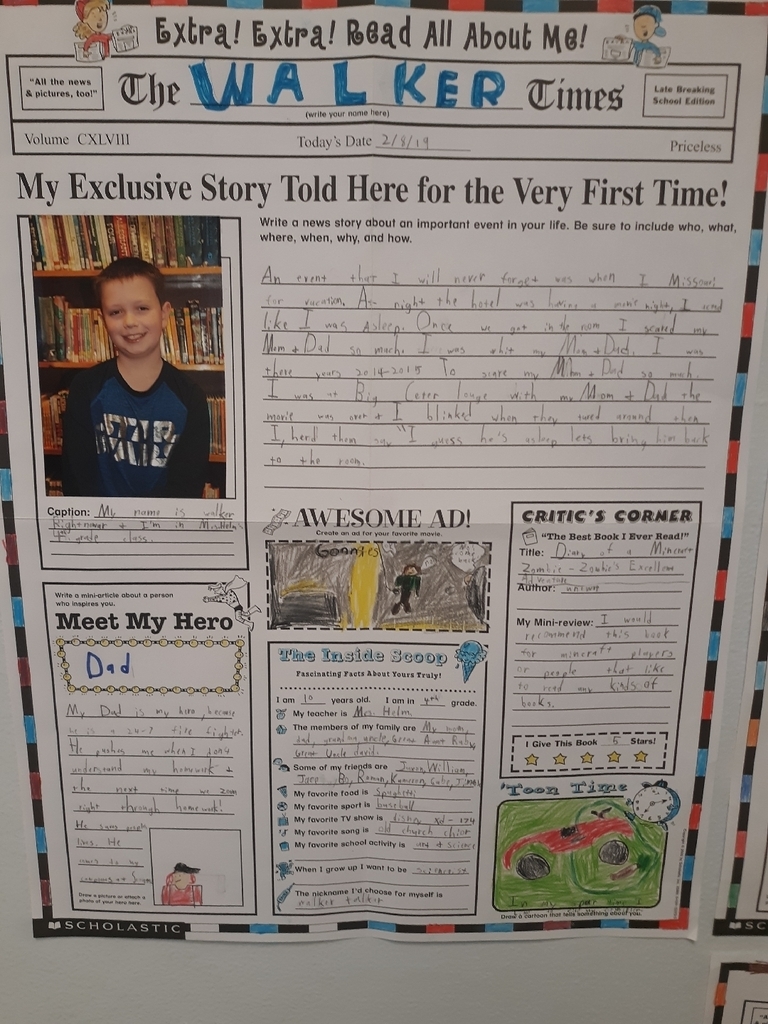 Extra! Extra! Read All About Me!
"All the news
& pictures, too!"
The WALKER Times
(write your name here)
Late Breaking
School Edition
Volume CXLVIII
Today's Date 2/8/19
Priceless
My Exclusive Story Told Here for the Very First Time!
Write a news story about an important event in your life. Be sure to include who, what,
where, when, why, and how.
An event that I will never forget was when I Missouri
for vacation. At night the hotel was having a movie night, I
like I was Asleep. Once we got in the room I scared my
Mom + Dad so much. I was whit my Mom + Dad. I was
there years 2014-2015 To scare my Mom + Dad so much.
I was at Big Ceter louge with my Mom + Dad the
movie was over + I blinked when they tured around then
I, herd them say "I guess he's asleep lets bring him back
to the room.
Caption: My name is walker
Rightnowar + I'm in Mrs.Helms
4th grade class.
AWESOME AD!
Create an ad for your favorite movie.
Goonies
CRITIC'S CORNER
"The Best Book I Ever Read!"
Title: Diary of a Mincraft
Zombie - Zombie's Excellent
Adventure
Author: unknown
My Mini-review: I would
recommend this book
for minecraft players
or people that like
to read any kinds of
books.
I Give This Book 5 Stars!
Write a mini-article about a person
who inspires you.
Meet My Hero
Dad
My Dad is my hero, because
he is a 24-7 fire fighter.
He pushes me when I don't
understand my homework +
the next time we zoom
right through homework!
He saves peoples
lives. He
Draw a picture or attach a
photo of your hero here.
The Inside Scoop
Fascinating Facts About Yours Truly!
I am 10 years old. I am in 4th grade.
My teacher is Mrs. Helm.
The members of my family are My mom,
dad, grandma, uncle, Great Aunt Ruby,
Great Uncle david.
Some of my friends are Jaxon, William,
Bo, Roman, Kameron, Gabe,
My favorite food is Spaghetti
My favorite sport is baseball
My favorite TV show is disney xd - 174
My favorite song is old church chior
My favorite school activity is art + science
When I grow up I want to be scientist
The nickname I'd choose for myself is
walker talker
'Toon Time
In my spar time I
Draw a cartoon that tells something about you.
SCHOLASTIC